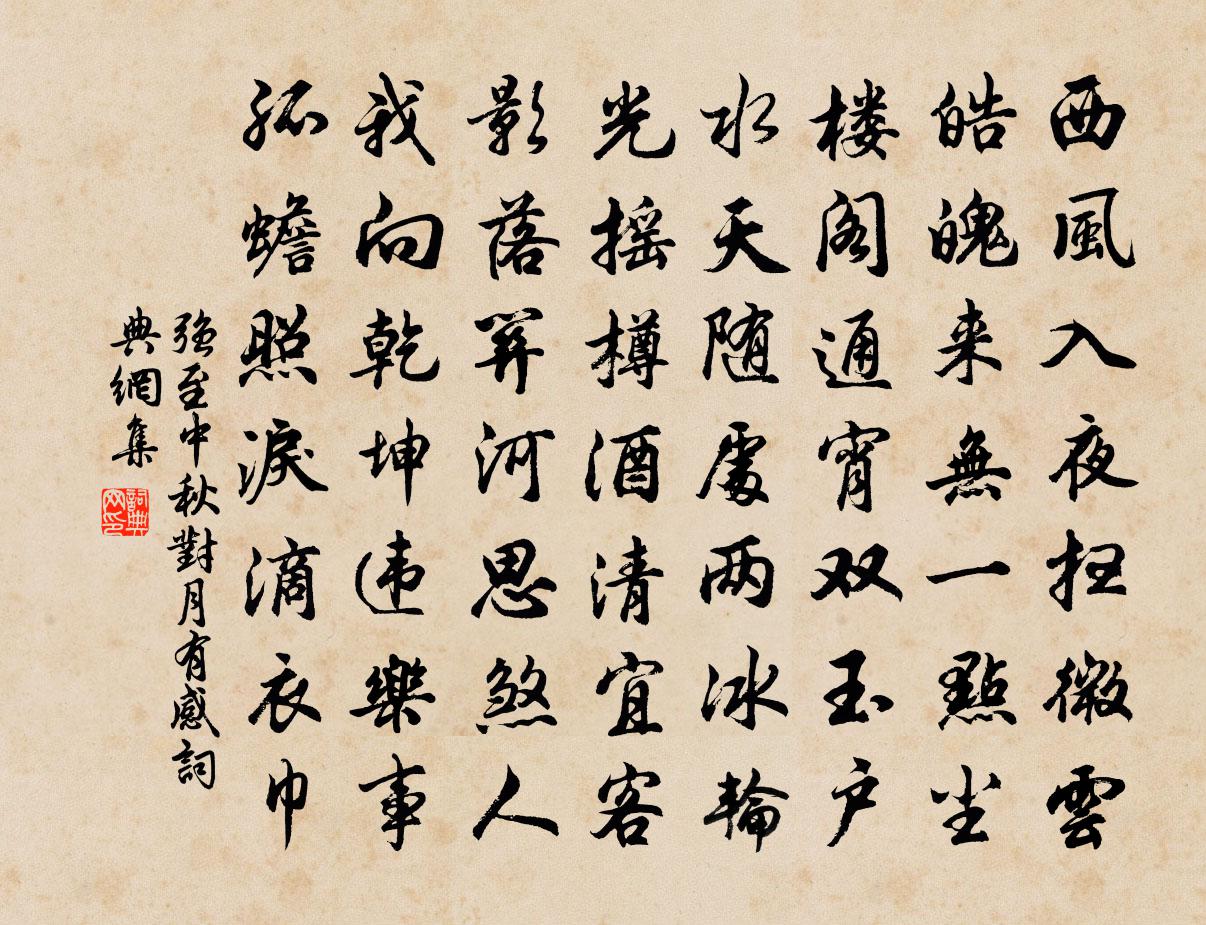 西風入夜扫微雲
皓魄来無一點尘
楼阁通宵双玉户
水天随處两冰輪
光摇樽酒清宜客
影落関河思煞人
我向乾坤违樂事
孤蟾照淚滴衣巾
强至中秋對月有感詞
典網集
詞典
网印